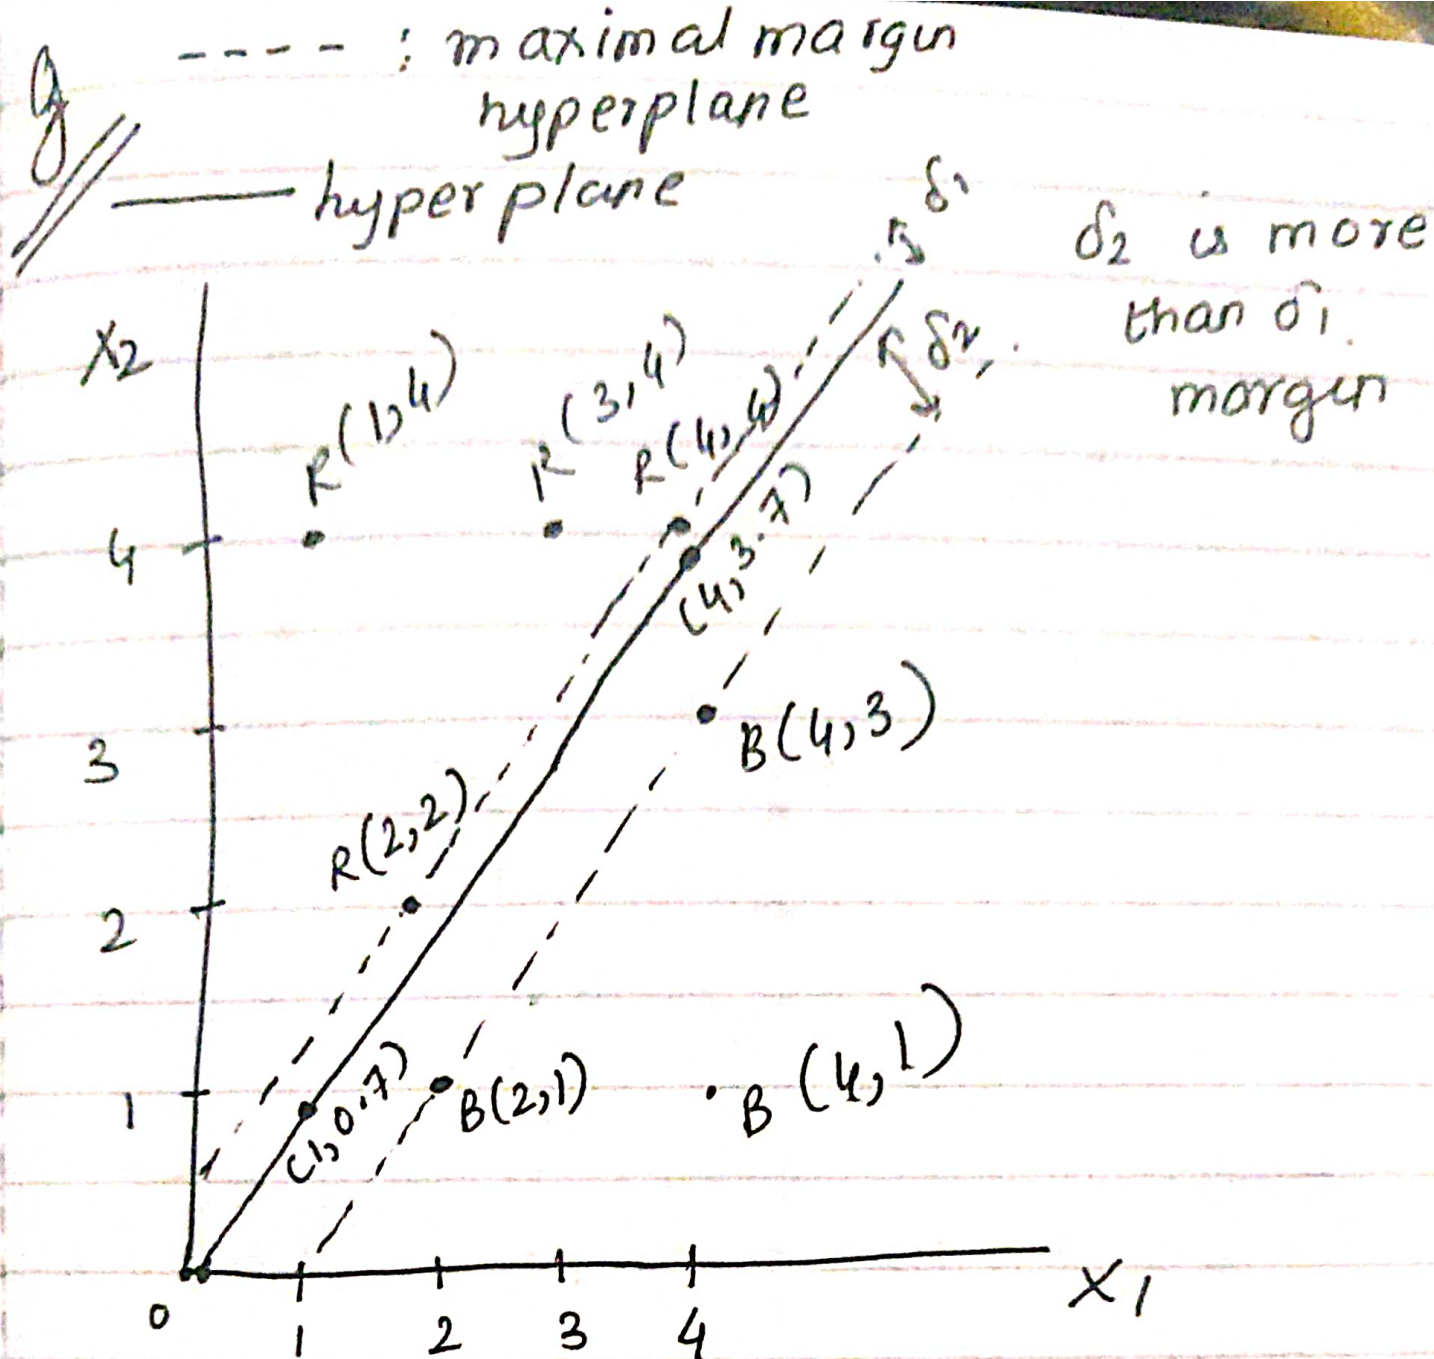 g
---- : maximal margin
hyperplane
—— hyper plane
δ1
δ2 is more
than δ1
margin
δ2
X2
R(1,4)
R(3,4)
R(4,4)
4
(4,3.7)
3
B(4,3)
R(2,2)
2
1
(1,0.7)
B(2,1)
B(4,1)
0
1
2
3
4
X1